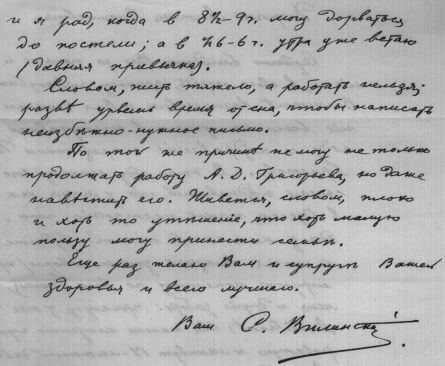 и я рад, когда в 8½-9 г. могу дорваться
до постели; а в ½6-6 г. утра уже встаю
(давняя привычка).
Словом, жить тяжело, а работать нельзя;
развѣ урвешь время от сна, чтобы написать
неизбѣжно-нужное письмо.
По той же причинѣ не могу не только
продолжать работу А. Д. Григорьева, но даже
навѣстить его. Живется, словом, плохо
и хоть то утѣшение, что хоть малую
пользу могу принести семьѣ.
Еще раз желаю Вам и супругѣ Вашей
здоровья и всего лучшаго.
Ваш С. Вилинский